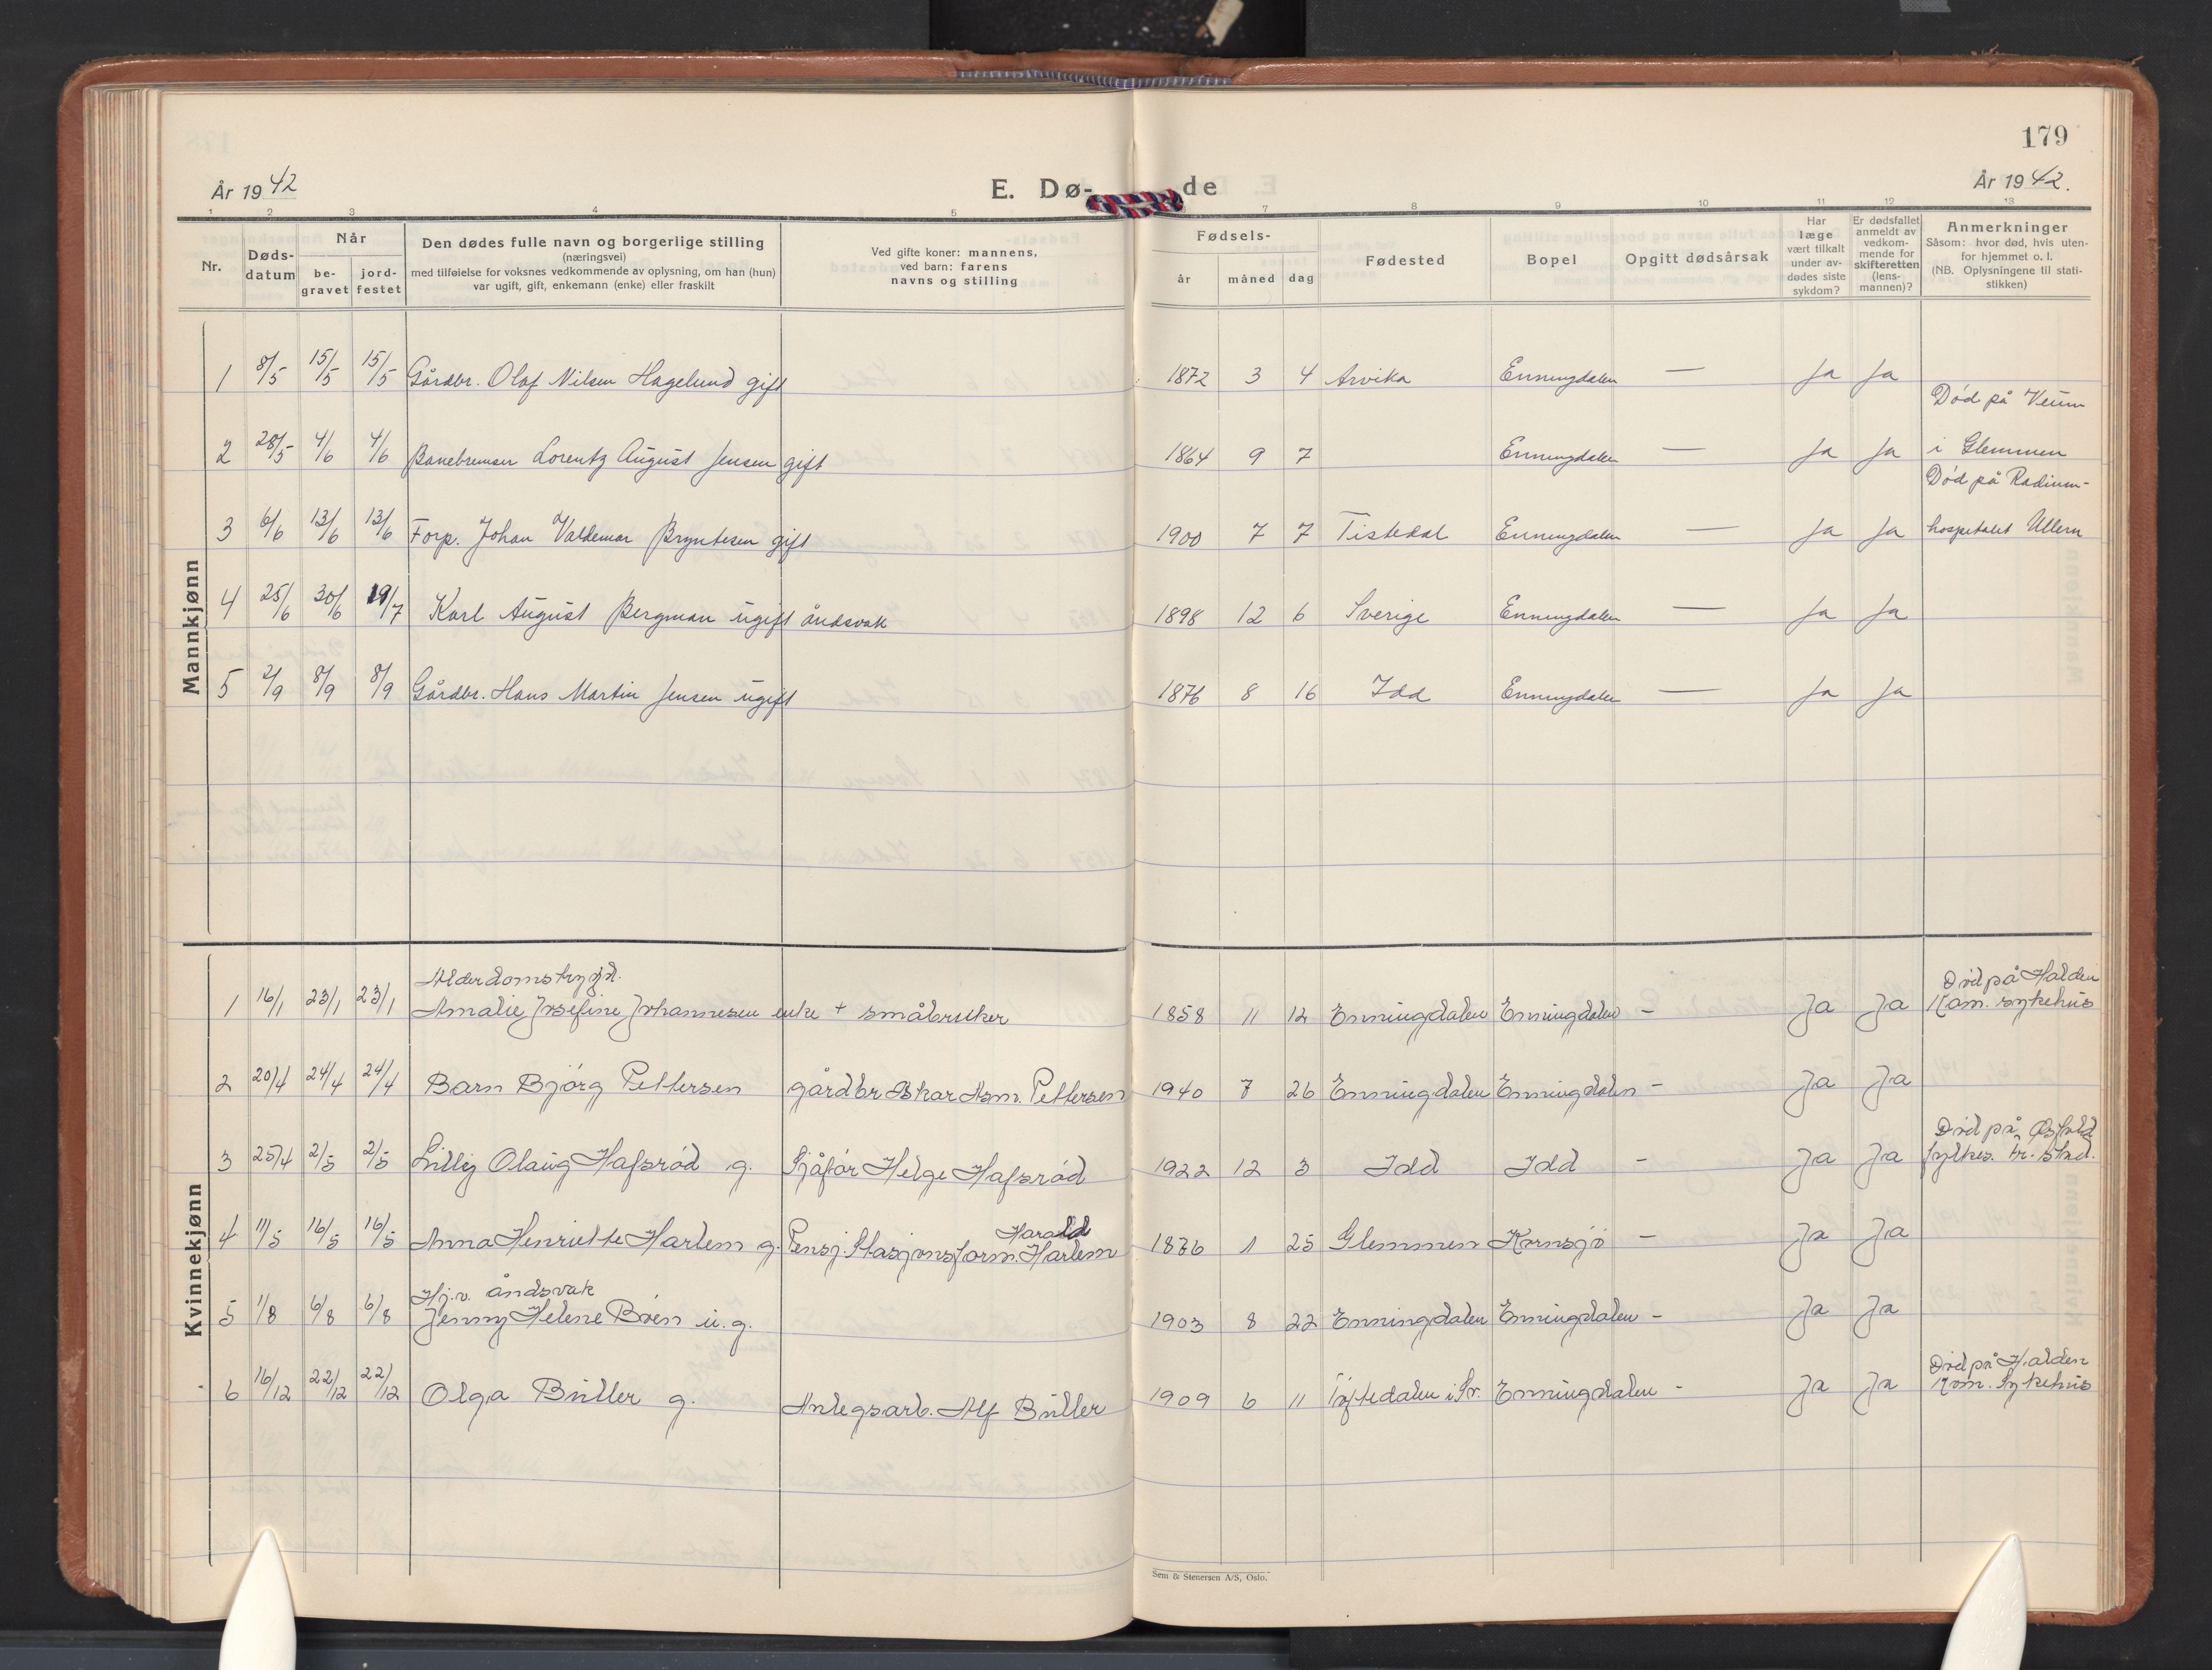 179
År 1942
E. Dø-de
År 1942.
1 2 3 4 5 6 7 8 9 10 11 12 13
Nr.
Døds-datum
Når
be-gravet
jord-festet
Den dødes fulle navn og borgerlige stilling
(næringsvei)
med tilføielse for voksnes vedkommende av oplysning, om han (hun)
var ugift, gift, enkemann (enke) eller fraskilt
Ved gifte koner: mannens,
ved barn: farens
navns og stilling
Fødsels-
år måned dag
Fødested
Bopel
Opgitt dødsårsak
Har læge vært tilkalt under av-dødes siste sykdom?
Er dødsfallet anmeldt av vedkom-mende for skifteretten (lens-mannen)?
Anmerkninger
Såsom: hvor død, hvis uten-
for hjemmet o. l.
(NB. Oplysningene til stati-
stikken)
Mannkjønn
1 8/5 15/5 15/5 Gårdbr. Olaf Nilsen Hagelund gift 1872 3 4 Arvika Enningdalen — Ja Ja
Død på Veum
2 28/5 4/6 4/6 Banebremser Lorentz August Jensen gift 1864 9 7 Enningdalen — Ja Ja i Glemmen
Død på Radium-
3 6/6 13/6 13/6 Forp. Johan Valdemar Bryntesen gift 1900 7 7 Tistedal Enningdalen — Ja Ja hospitalet Ullern
4 25/6 30/6 19/7 Karl August Bergman ugift åndsvak 1898 12 6 Sverige Enningdalen — Ja Ja
5 2/9 8/9 8/9 Gårdbr. Hans Martin Jensen ugift 1876 8 16 Idd Enningdalen — Ja Ja
Kvinnekjønn
Alderdomstrygd. Död på Halden
1 16/1 23/1 23/1 Amalie Josefine Johannesen enke + småbruker 1858 11 12 Enningdalen Enningdalen - Ja Ja Kom. sykehus
2 20/4 24/4 24/4 Barn Bjørg Pettersen gårdbr Oskar Asm. Pettersen 1940 7 26 Enningdalen Enningdalen - Ja Ja
Död på Østfold
3 25/4 2/5 2/5 Lilly Olaug Hafsröd g. Sjåför Helge Hafsröd 1922 12 3 Idd Idd - Ja Ja fylkes. Fr. stad.
Harald
4 11/5 16/5 16/5 Anna Henriette Harlem g. Pensj. Stasjonsform. Harlem 1876 1 25 Glemmen Kornsjö - Ja Ja
Hj.v. åndsvak
5 1/8 6/8 6/8 Jenny Helene Boen u.g. 1903 8 22 Enningdalen Enningdalen - Ja Ja
Död på Halden
6 16/12 22/12 22/12 Olga Büller g. Anlegsarb. Alf Büller 1909 6 11 Töftedalen i Sv. Enningdalen - Ja Ja Kom. Sykehus
Sem & Stenersen A/S, Oslo.